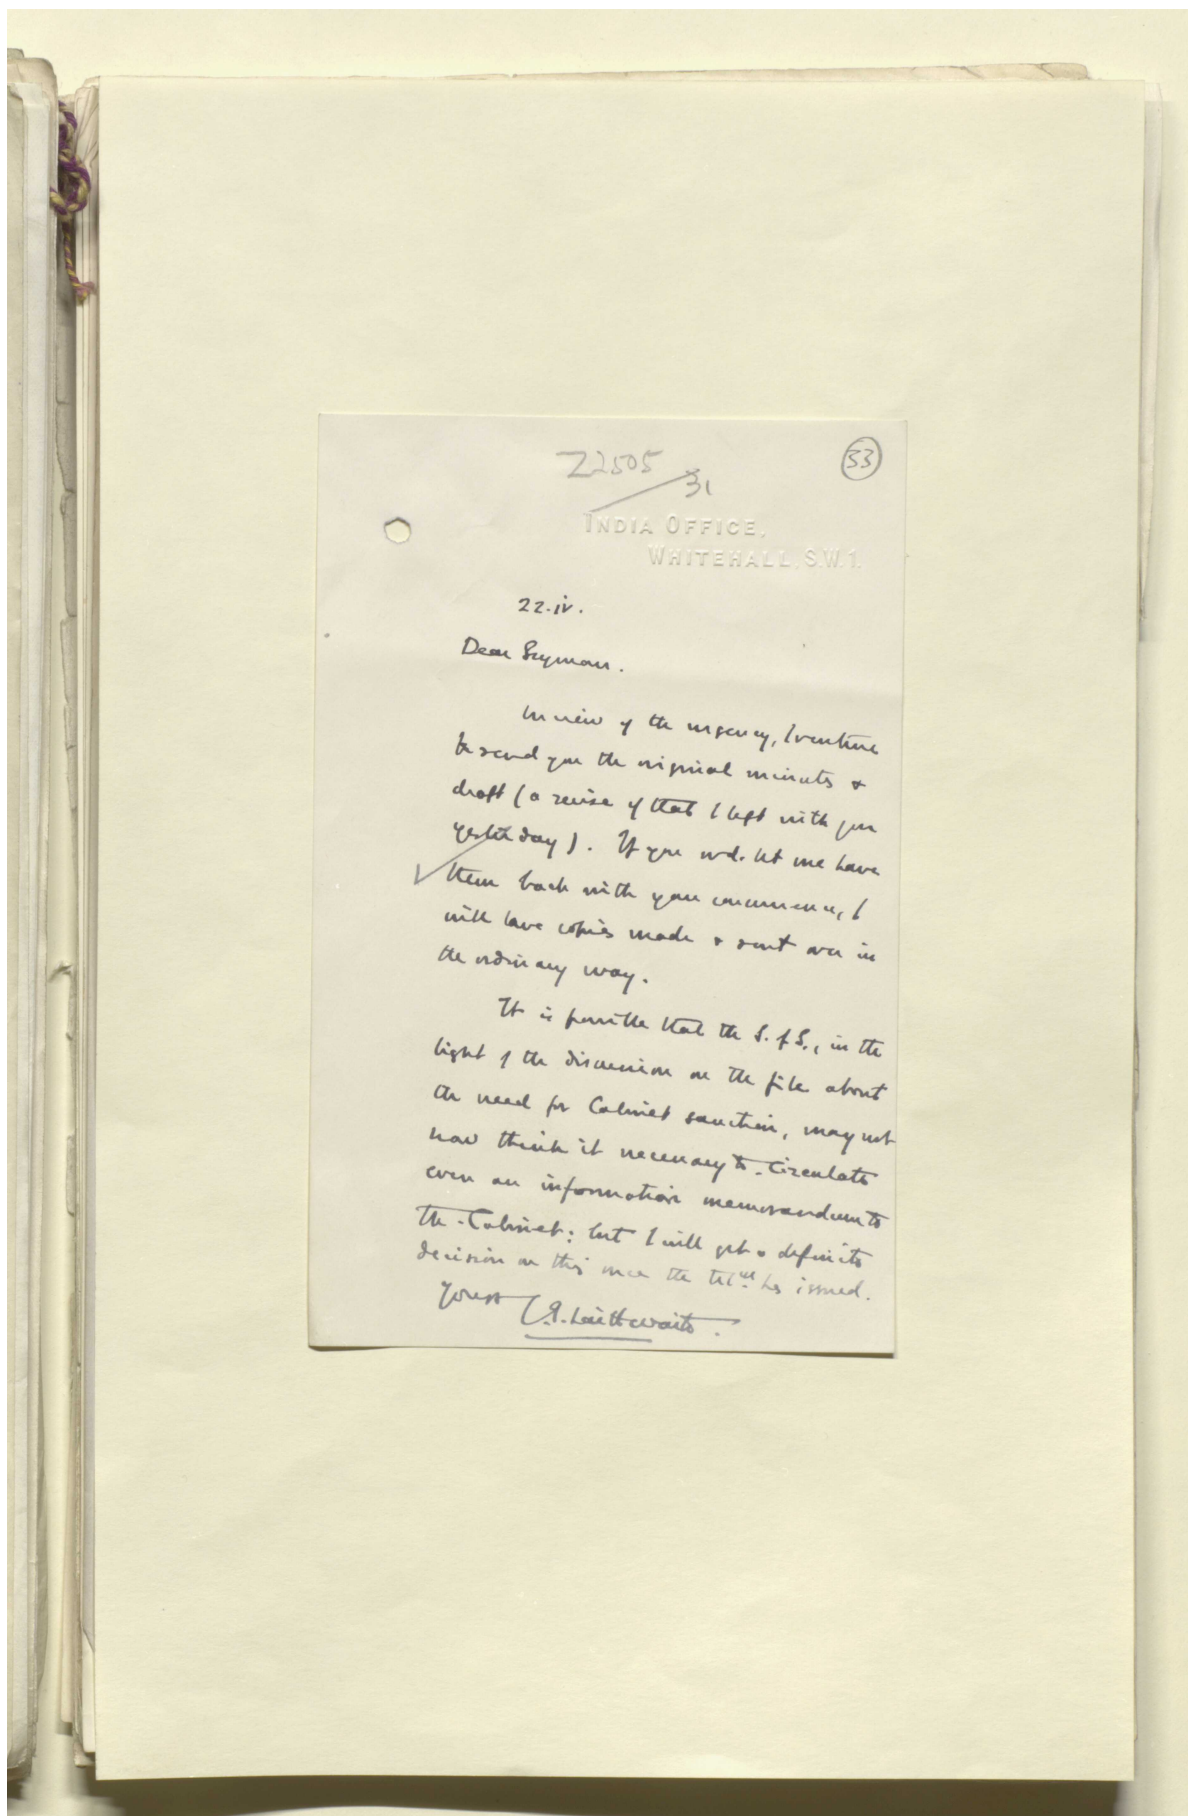 Z2505
31
33
INDIA OFFICE,
WHITEHALL, S.W.1.
22.iv.
Dear Seymour.
In view of the urgency, I venture
to send you the original minutes &
draft (a revise of that I left with you
yesterday). If you wd. let me have
them back with your concurrence, I
will have copies made & sent over in
the ordinary way.
It is possible that the S. of S., in the
light of the discussion on the file about
the need for Cabinet sanction, may not
now think it necessary to circulate
even an information memorandum to
the Cabinet: but I will get a definite
decision on this once the tel. has issued.
Yours
J.G. Laithwaite.